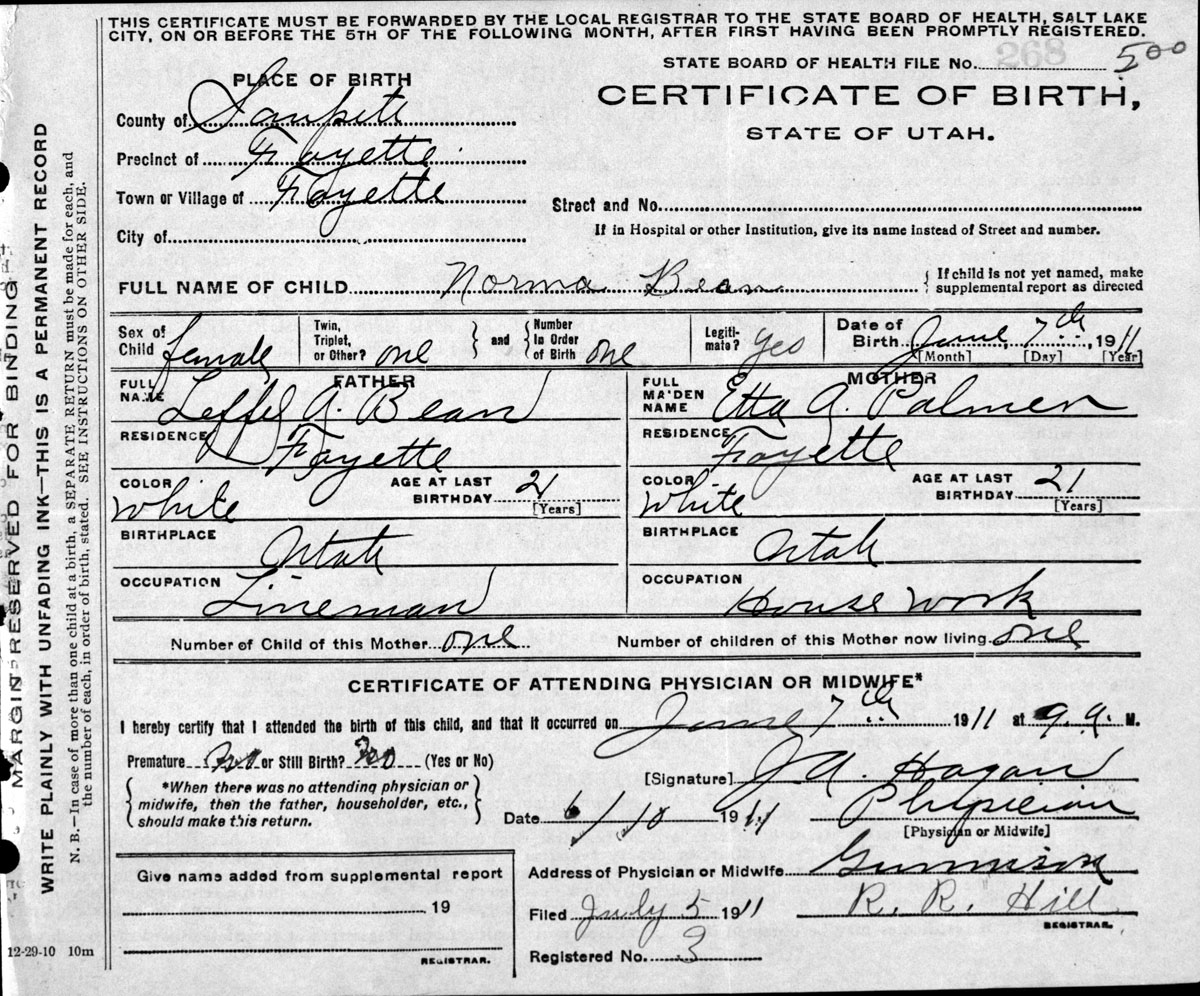 THIS CERTIFICATE MUST BE FORWARDED BY THE LOCAL REGISTRAR TO THE STATE BOARD OF HEALTH, SALT LAKE
CITY, ON OR BEFORE THE 5TH OF THE FOLLOWING MONTH, AFTER FIRST HAVING BEEN PROMPTLY REGISTERED.
268
STATE BOARD OF HEALTH FILE No. 500
PLACE OF BIRTH
CERTIFICATE OF BIRTH,
STATE OF UTAH.
County of Sanpete
Precinct of Fayette
Town or Village of Fayette
Street and No.
City of
If in Hospital or other Institution, give its name instead of Street and number.
FULL NAME OF CHILD Norma Bean
If child is not yet named, make
supplemental report as directed
Sex of Child female
Twin, Triplet, or Other? one
and
Number In Order of Birth one
Legiti-mate? Yes
Date of Birth June 7th, 1911
[Month] [Day] [Year]
FATHER
FULL NAME Leffel A. Bean
RESIDENCE Fayette
COLOR White
AGE AT LAST BIRTHDAY 21
[Years]
BIRTHPLACE Utah
OCCUPATION Lineman
MOTHER
FULL MAIDEN NAME Etta A. Palmer
RESIDENCE Fayette
COLOR White
AGE AT LAST BIRTHDAY 21
[Years]
BIRTHPLACE Utah
OCCUPATION House work
Number of Child of this Mother one
Number of children of this Mother now living one
CERTIFICATE OF ATTENDING PHYSICIAN OR MIDWIFE*
I hereby certify that I attended the birth of this child, and that it occurred on June 7th 1911 at 9 a. M.
Premature No or Still Birth? No (Yes or No)
*When there was no attending physician or
midwife, then the father, householder, etc.,
should make this return.
[Signature] J A. Hagan
Date 6/10 1911
Physician
[Physician or Midwife]
Address of Physician or Midwife Gunnison
Filed July 5 1911
R. R. Hill
REGISTRAR.
Registered No. 3
Give name added from supplemental report
19
REGISTRAR.
12-29-10 10m
MARGIN RESERVED FOR BINDING
WRITE PLAINLY WITH UNFADING INK—THIS IS A PERMANENT RECORD
N. B.—In case of more than one child at a birth, a SEPARATE RETURN must be made for each, and
the number of each, in order of birth, stated. SEE INSTRUCTIONS ON OTHER SIDE.